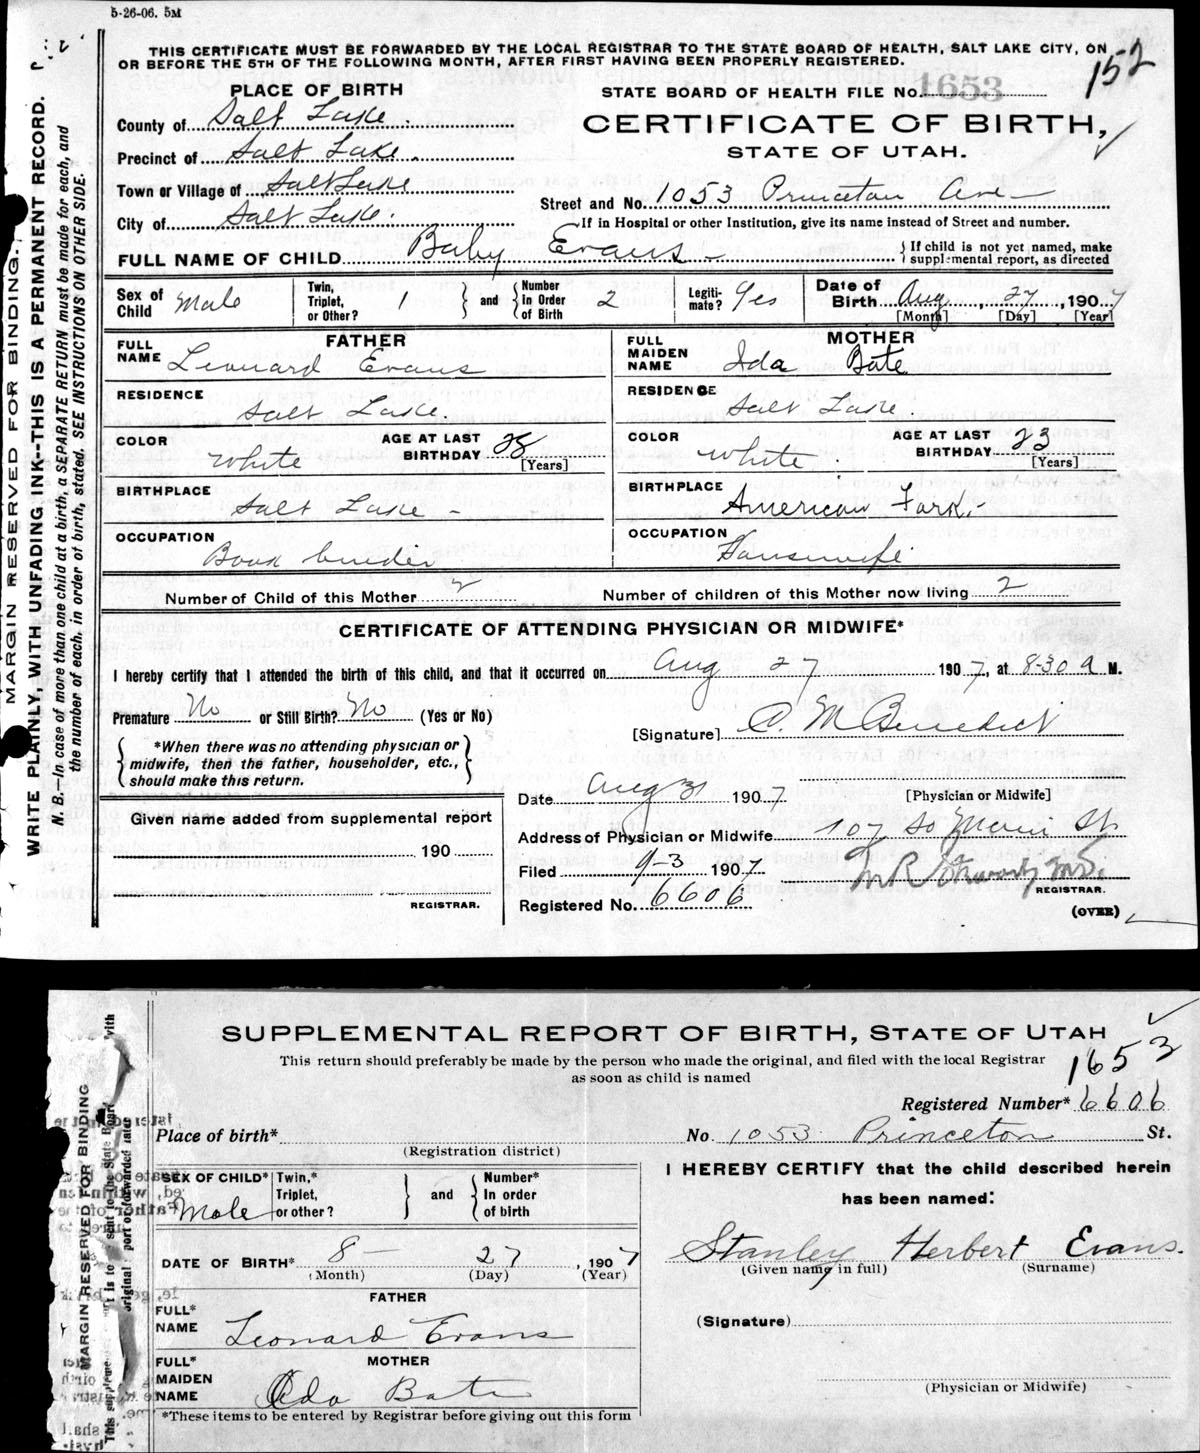 5-26-06. 5M
THIS CERTIFICATE MUST BE FORWARDED BY THE LOCAL REGISTRAR TO THE STATE BOARD OF HEALTH, SALT LAKE CITY, ON
OR BEFORE THE 5TH OF THE FOLLOWING MONTH, AFTER FIRST HAVING BEEN PROPERLY REGISTERED.
152
PLACE OF BIRTH
STATE BOARD OF HEALTH FILE No. 1653
County of Salt Lake.
CERTIFICATE OF BIRTH,
Precinct of Salt Lake.
STATE OF UTAH.
Town or Village of Salt Lake
Street and No. 1053 Princeton Ave
City of Salt Lake.
If in Hospital or other Institution, give its name instead of Street and number.
FULL NAME OF CHILD Baby Evans
If child is not yet named, make
supplemental report, as directed
Sex of Child Male
Twin, Triplet, or Other? 1
and
Number In Order of Birth 2
Legitimate? Yes
Date of Birth Aug, 27, 1907
[Month] [Day] [Year]
FATHER
MOTHER
FULL NAME Leonard Evans
FULL MAIDEN NAME Ida Bate
RESIDENCE Salt Lake.
RESIDENCE Salt Lake.
COLOR White
AGE AT LAST BIRTHDAY 28 [Years]
COLOR White
AGE AT LAST BIRTHDAY 23 [Years]
BIRTHPLACE Salt Lake -
BIRTHPLACE American Fork.-
OCCUPATION Book binder
OCCUPATION Housewife
Number of Child of this Mother 2
Number of children of this Mother now living 2
CERTIFICATE OF ATTENDING PHYSICIAN OR MIDWIFE*
I hereby certify that I attended the birth of this child, and that it occurred on Aug 27 1907, at 8-30 a M.
Premature No or Still Birth? No (Yes or No)
[Signature] C. M Benedict
*When there was no attending physician or
midwife, then the father, householder, etc.,
should make this return.
Date Aug 31 1907
[Physician or Midwife]
Given name added from supplemental report
Address of Physician or Midwife 107 So Main St
190
Filed 9-3 1907
M.D.
REGISTRAR.
REGISTRAR.
Registered No. 6606
(OVER)
MARGIN RESERVED FOR BINDING.
WRITE PLAINLY, WITH UNFADING INK--THIS IS A PERMANENT RECORD.
N. B.—In case of more than one child at a birth, a SEPARATE RETURN must be made for each, and
the number of each. in order of birth, stated. SEE INSTRUCTIONS ON OTHER SIDE.
SUPPLEMENTAL REPORT OF BIRTH, STATE OF UTAH
This return should preferably be made by the person who made the original, and filed with the local Registrar
as soon as child is named
1653
Registered Number* 6606
Place of birth*
(Registration district)
No. 1053 Princeton St.
SEX OF CHILD* Male
Twin,* Triplet, or other?
and
Number* In order of birth
I HEREBY CERTIFY that the child described herein
has been named:
DATE OF BIRTH* 8- 27, 1907
(Month) (Day) (Year)
Stanley Herbert Evans.
(Given name in full) (Surname)
FATHER
FULL* NAME Leonard Evans
(Signature)
MOTHER
FULL* MAIDEN NAME Ida Bate
(Physician or Midwife)
*These items to be entered by Registrar before giving out this form
MARGIN RESERVED FOR BINDING